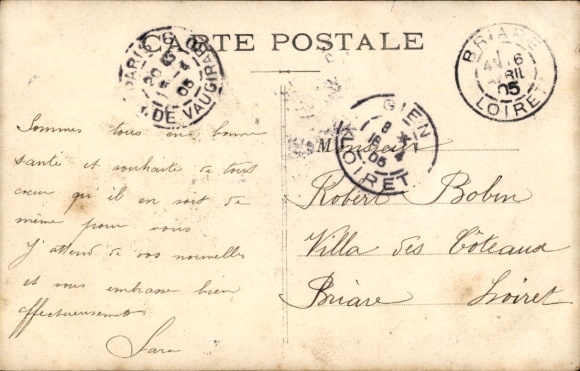 CARTE POSTALE
PARIS
DE VAUGIRARD
05
BRIARE
6
AVRIL
05
LOIRET
GIEN
8
16
4
05
LOIRET
Sommes tous en bonne
santé et souhaite de tout
coeur qu'il en soit de
même pour vous
J'attend de vos nouvelles
et vous embrasse bien
affectueusement
Monsieur
Robert Bobin
Villa des Côteaux
Briare Loiret